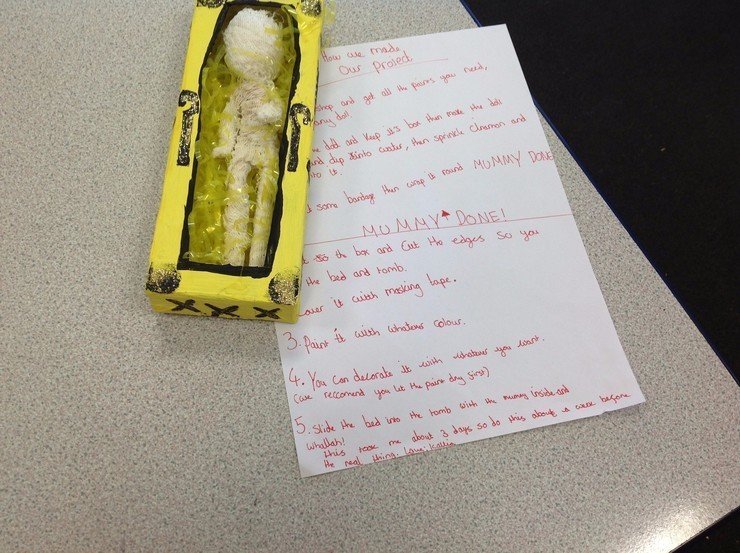 How we made
Our Project
shop and get all the parts you need,
any doll.
doll and keep it's box then make the doll
and dip into water, then sprinkle cinamon and
into it.
some bandage then wrap it round MUMMY DONE
MUMMY DONE!
the box and Cut the edges so you
the bed and tomb.
cover it with masking tape.
3. Paint it with whatever colour.
4. You can decorate it with whatever you want.
(we reccomend you let the paint dry first)
5. Slide the bed into the tomb with the mummy inside and
whallah!
this took me about 3 days so do this about a week before
the real thing. Love:
XXX